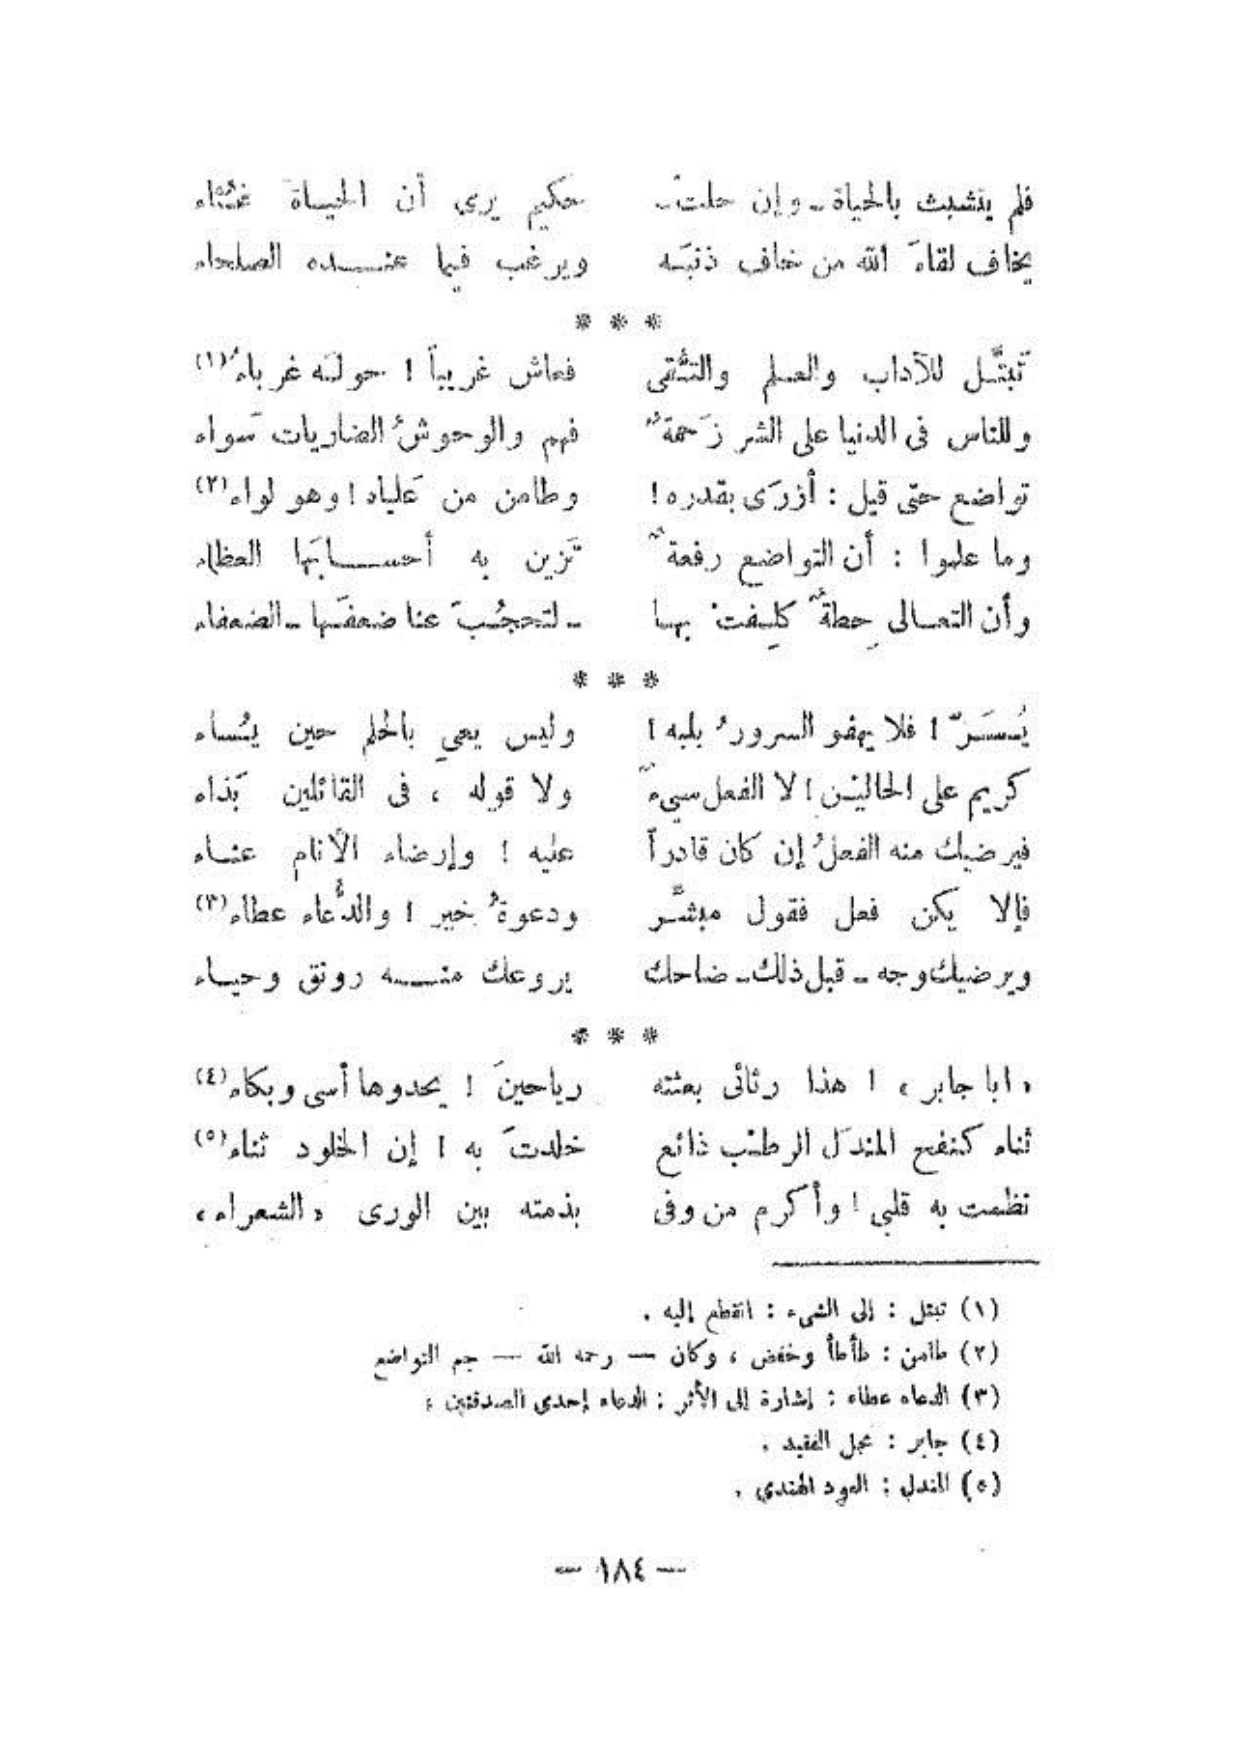 فلم يتشبث بالحياة ـ وإن حلت ـ حكيم يرى أن الحياة غثاء
يخاف لقاءَ الله من خاف ذنبَه ويرغب فيما عنده الصلحاء
* * *
تَبتَّل للآداب والعلم والتُّقى فعاش غريباً ! حولَه غرباءُ (١)
وللناس فى الدنيا على الشر زَحمةٌ فهم والوحوشُ الضاريات سَواء
تواضع حتى قيل : أزرَى بقدره ! وطامن من عَلياه ! وهو لواء (٢)
وما علموا : أن التواضع رفعةٌ تَزين به أحسابَها العظماء
وأن التعالى حِطةٌ كلِفتْ بها ـ لتحجُبَ عنا ضعفَها ـ الضعفاء
* * *
يُسَرّ ! فلا يهفو السرورُ بلبه ! وليس يعي بالحلم حين يُساء
كريم على الحاليْن ! لا الفعل سيءٌ ولا قوله ، فى القائلين بَذاء
فيرضيك منه الفعلُ إن كان قادراً عليه ! وإرضاء الأنام عناء
فإلا يكن فعل فقول مبشّر ودعوةُ خير ! والدُّعاء عطاء (٣)
ويرضيك وجه ـ قبل ذلك ـ ضاحك يروعك منه رونق وحياء
* * *
« ابا جابر » ! هذا رثائى بعثته رياحينَ ! يحدوها أسى وبكاء (٤)
ثناء كنفح المندَل الرطْب ذائع خلدتَ به ! إن الخلود ثناء (٥)
نظمت به قلبى ! وأكرم من وفى بذمته بين الورى « الشعراء »
(١) تبتل : إلى الشىء : انقطع إليه .
(٢) طامن : طأطأ وخفض ، وكان — رحمه الله — جم التواضع
(٣) الدعاء عطاء : إشارة إلى الأثر : الدعاء إحدى الصدقتين :
(٤) جابر : نجل الفقيد .
(٥) المندل : العود الهندي .
— ١٨٤ —